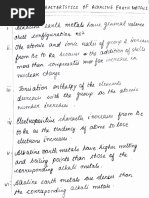 CHARACTERISTICS OF ALKALINE EARTH METALS
i. Alkaline earth metals have general valence
shell configuration ns²
ii. The atomic and ionic radii of group 2 increase
from Be to Ba because the addition of shells
more than compensates for increase in
nuclear charge
iii. Ionisation enthalpy of the elements
decrease with the group as the atomic
number increases.
iv. Electropositive character increase from Be
to Ba as the tendency of atoms to lose
electrons increases
v. Alkaline earth metals have higher melting
and boiling points than those of the
corresponding alkali metals
vi. Alkaline earth metals are denser than
the corresponding alkali metals.